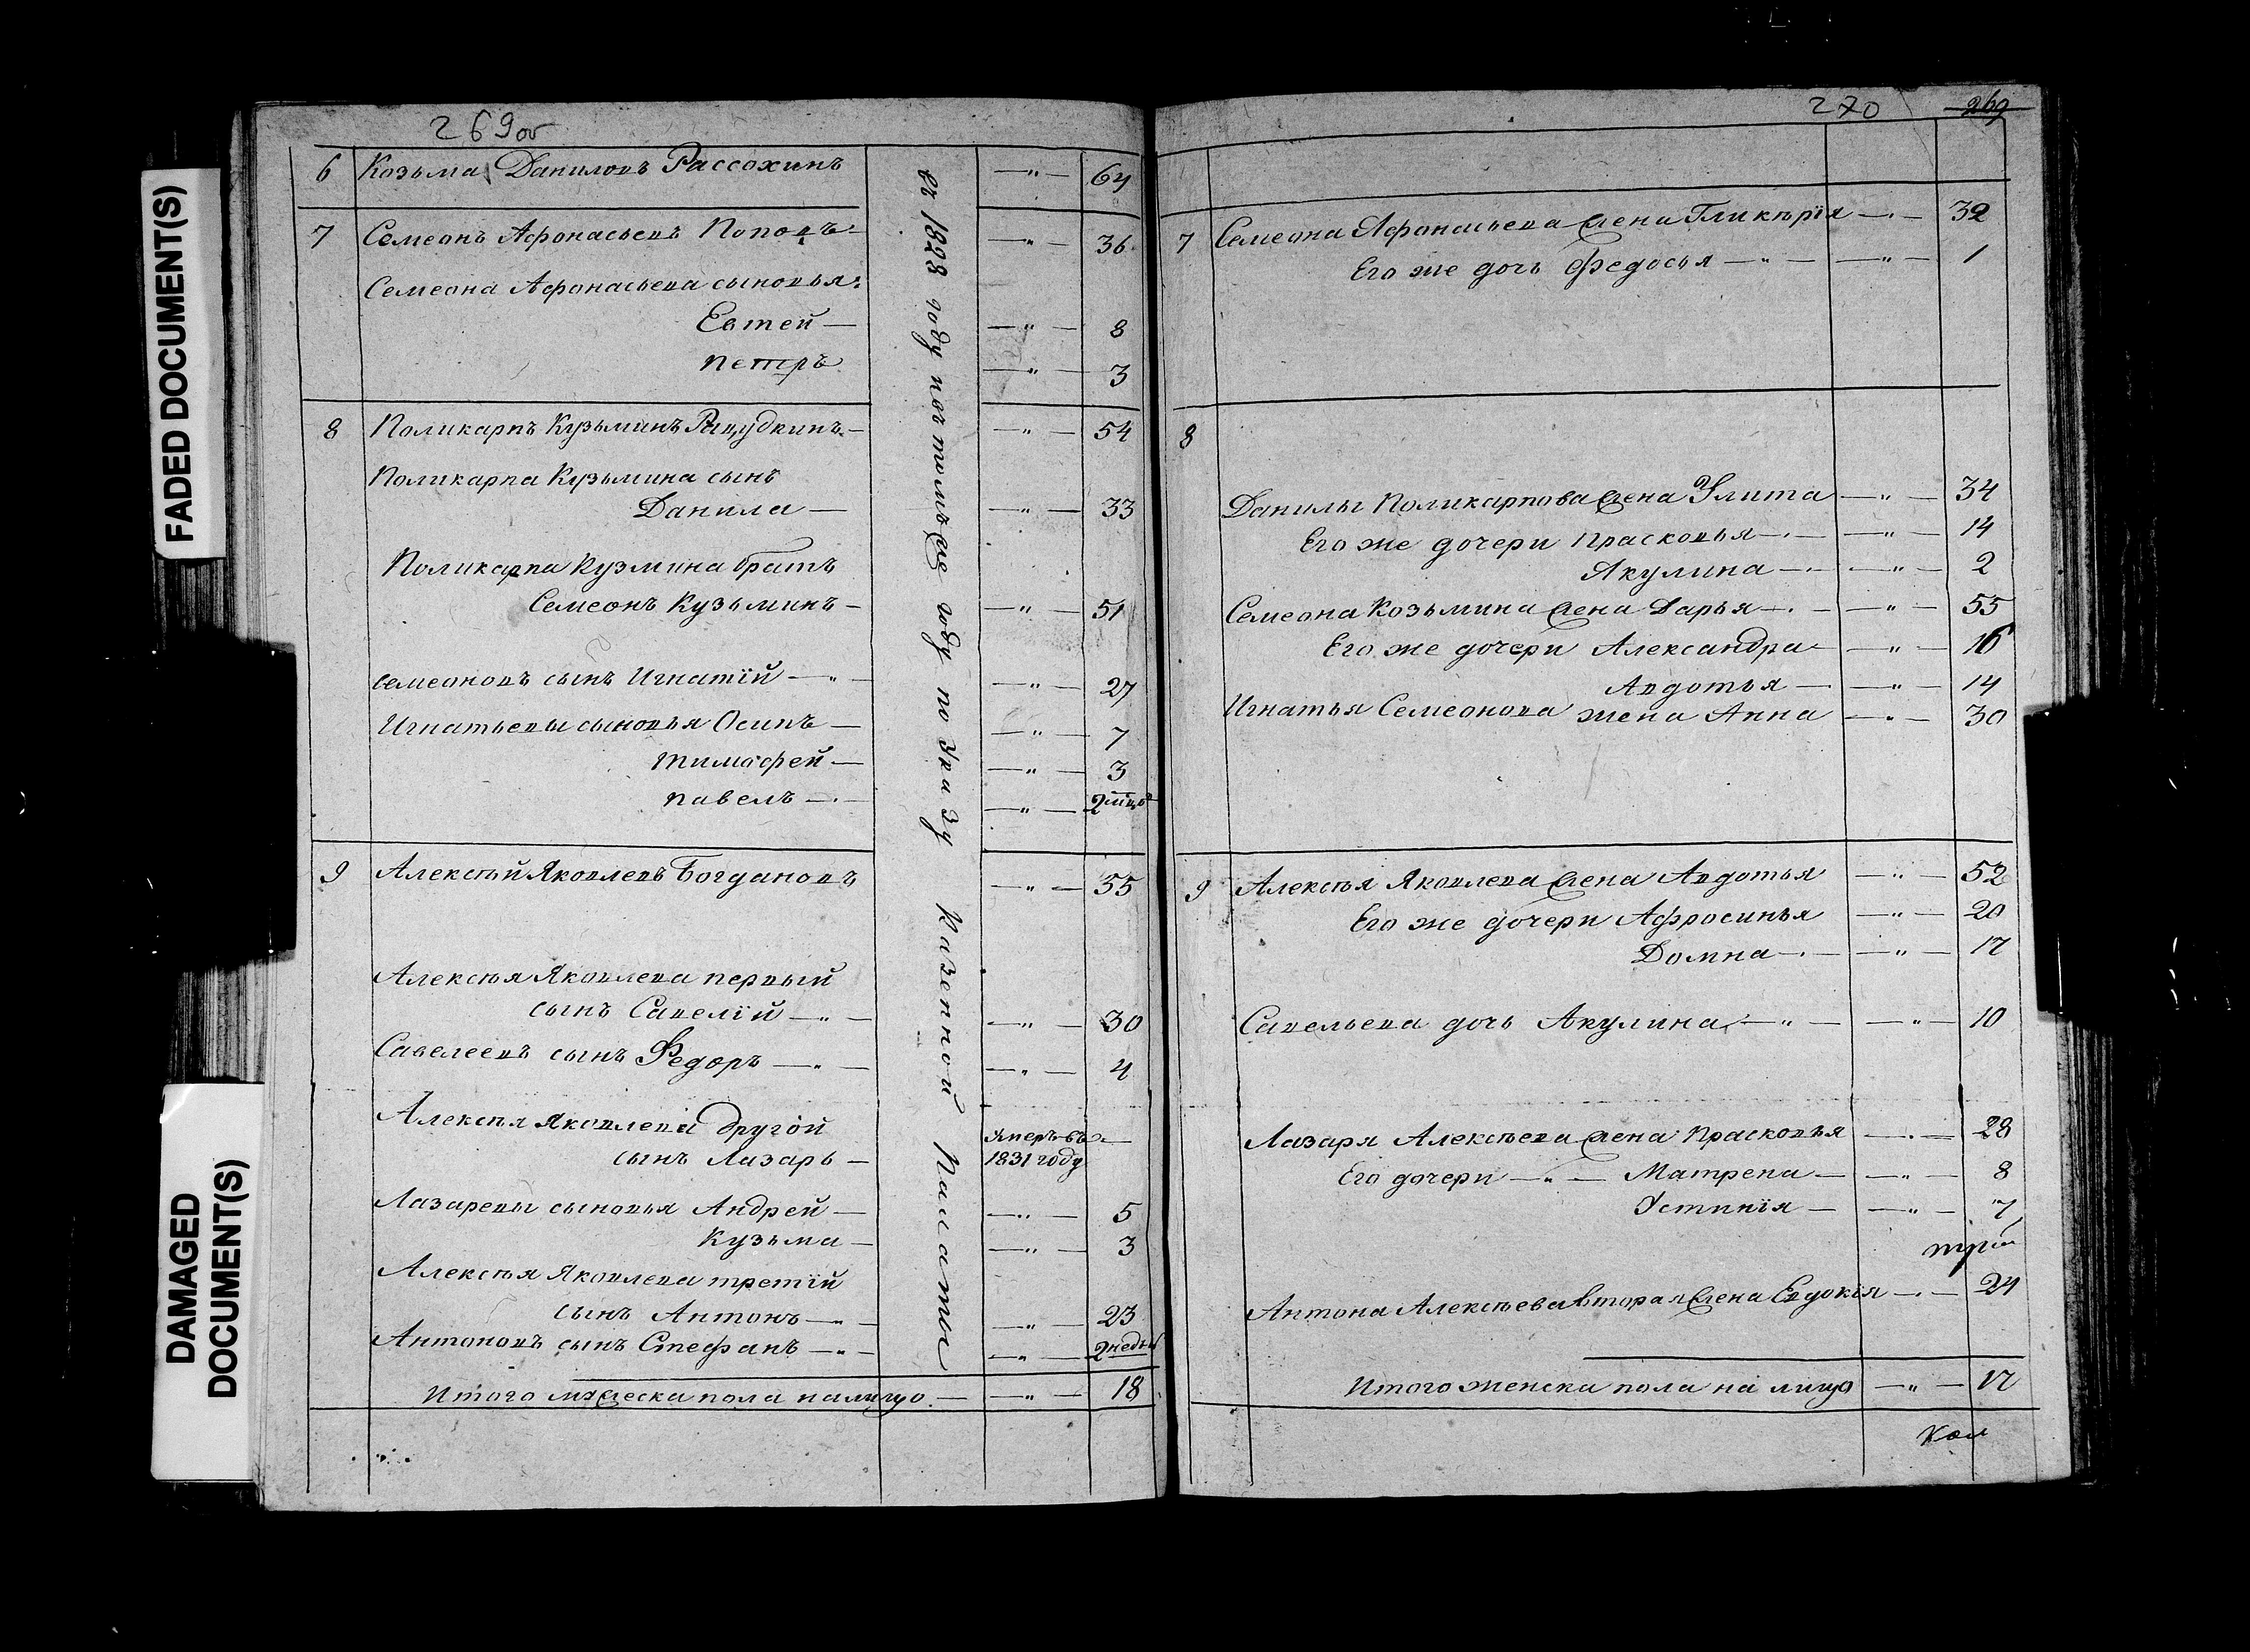 FADED DOCUMENT(S)
DAMAGED
DOCUMENT(S)
269об
6 Козьма Даниловъ Рассохинъ —"— 64
7 Семеонъ Афонасьевъ Поповъ —"— 36
Семеона Афонасьева сыновья:
Евтей — —"— 8
Петръ —"— 3
8 Поликарпъ Кузьминъ — —"— 54
Поликарпа Кузьмина сынъ
Данила — —"— 33
Поликарпа Кузмина братъ
Семеонъ Кузьминъ — —"— 51
Семеоновъ сынъ Игнатій —"— —"— 27
Игнатьевы сыновья Осипъ — —"— 7
Тимофей — —"— 3
Павелъ — —"— 2
9 Алексѣй Яковлевъ Богдановъ —"— 55
Алексѣя Яковлева первый
сынъ Савелій —"— —"— 30
Савелеевъ сынъ Федоръ —"— —"— 4
Алексѣя Яковлева другой
сынъ Лазарь — умеръ въ 1831 году
Лазаревы сыновья Андрей — —"— 5
Кузьма — —"— 3
Алексѣя Яковлева третій
сынъ Антонъ —"— —"— 23
Антоновъ сынъ Стефанъ —"— —"— 2 недѣли
Итого мужеска пола налицо — —"— 18
въ 1828 году и въ томъ же году по Указу Казенной Палаты
270 269
7 Семеона Афонасьева жена Гликѣрія —"— 32
Его же дочь Федосья —"— —"— 1
8
Данилы Поликарпова жена Улита —"— 34
Его же дочери Прасковья —"— —"— 14
Акулина —"— —"— 2
Семеона Козьмина жена Дарья —"— —"— 55
Его же дочери Александра —"— 16
Авдотья — —"— 14
Игнатья Семеонова жена Анна —"— 30
9 Алексѣя Яковлева жена Авдотья —"— 52
Его же дочери Афросинья —"— 20
Домна —"— —"— 17
Савельева дочь Акулина —"— —"— 10
Лазаря Алексѣева жена Прасковья —"— 28
Его дочери —"— Матрена — —"— 8
Устинія — —"— 7
Антона Алексѣева вторая жена Евдокія —"— 24
Итого женска пола на лицо —"— 17